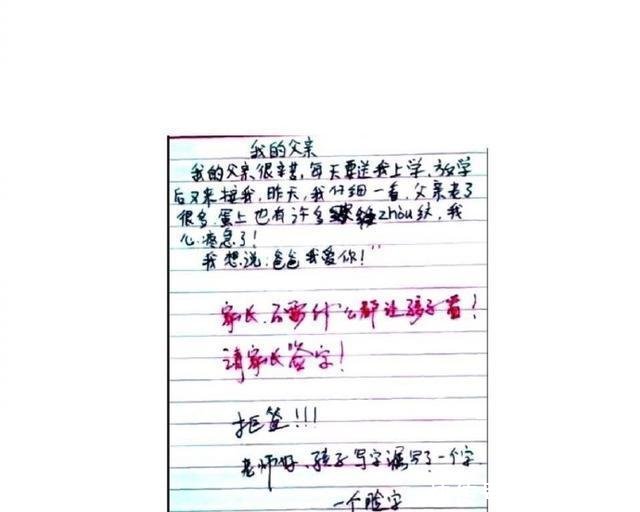 我的父亲
我的父亲很辛苦,每天要送我上学,放学
后又来接我,昨天,我仔细一看,父亲老了
很多,蛋上也有许多zhòu纹,我
心疼急了!
我想说:爸爸我爱你!"
家长,不要什么都让孩子看!
请家长签字!
拒签!!!
老师好,孩子写字漏写了一个字
一个脸字